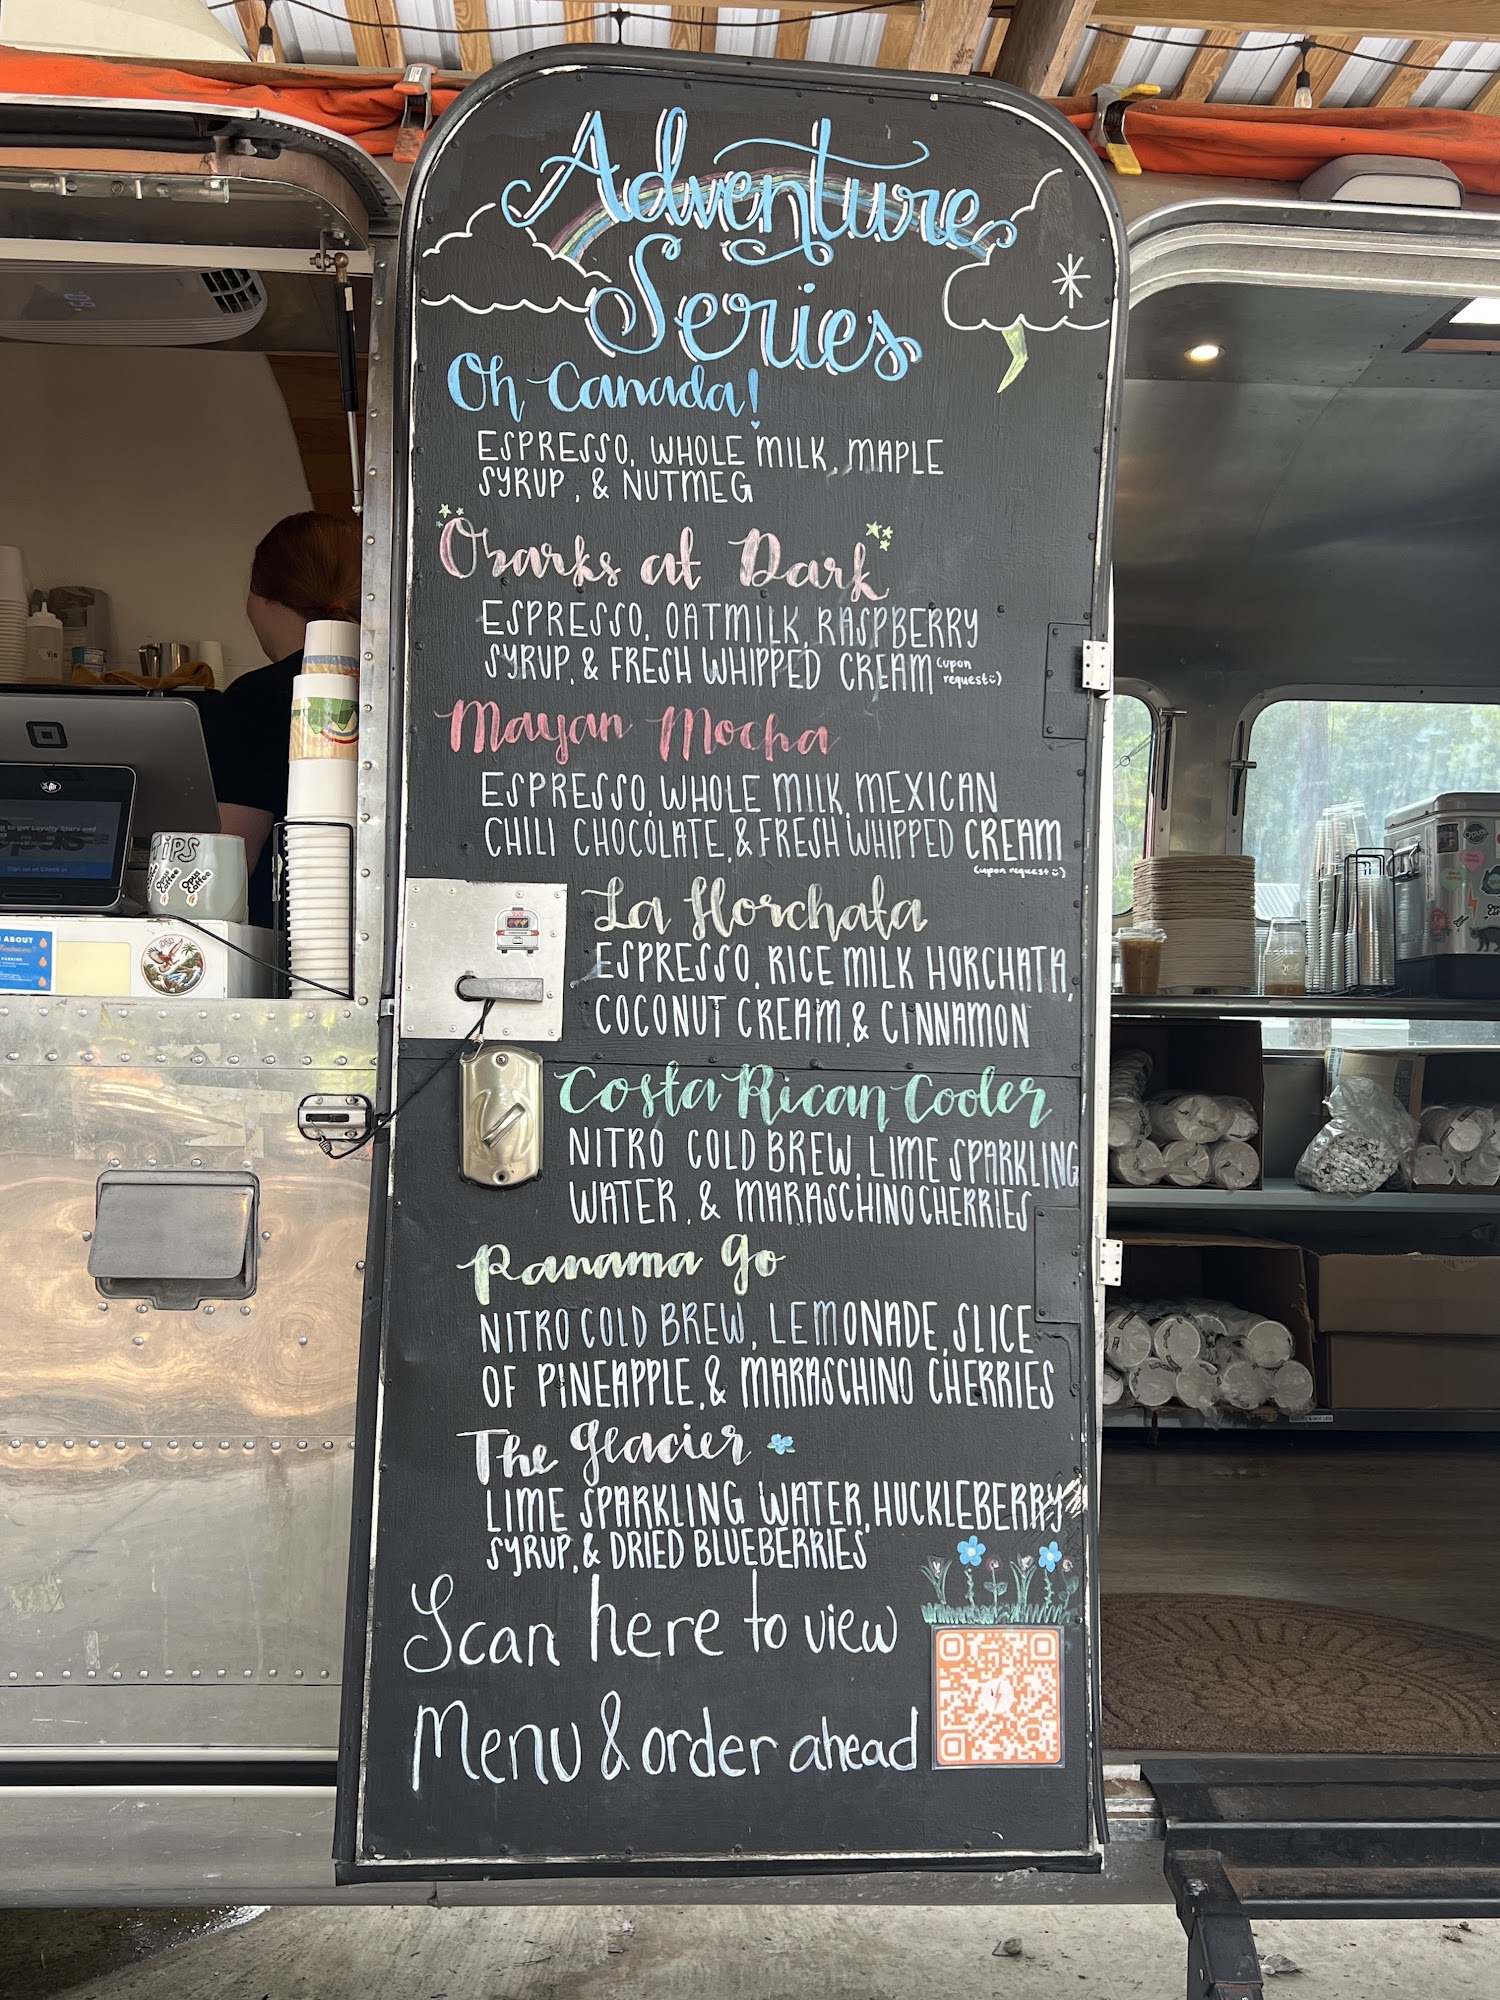 Adventure
Series
Oh Canada!
ESPRESSO, WHOLE MILK, MAPLE
SYRUP, & NUTMEG
Ozarks at Dark
ESPRESSO, OATMILK, RASPBERRY
SYRUP, & FRESH WHIPPED CREAM (upon
request :)
Mayan Mocha
ESPRESSO, WHOLE MILK, MEXICAN
CHILI CHOCOLATE, & FRESH WHIPPED CREAM
(upon request :)
La Horchata
ESPRESSO, RICE MILK HORCHATA,
COCONUT CREAM, & CINNAMON
Costa Rican Cooler
NITRO COLD BREW, LIME SPARKLING
WATER, & MARASCHINO CHERRIES
Panama Go
NITRO COLD BREW, LEMONADE, SLICE
OF PINEAPPLE, & MARASCHINO CHERRIES
The Glacier
LIME SPARKLING WATER, HUCKLEBERRY
SYRUP, & DRIED BLUEBERRIES
Scan here to view
Menu & order ahead
TIPS
Opus
Coffee
ABOUT